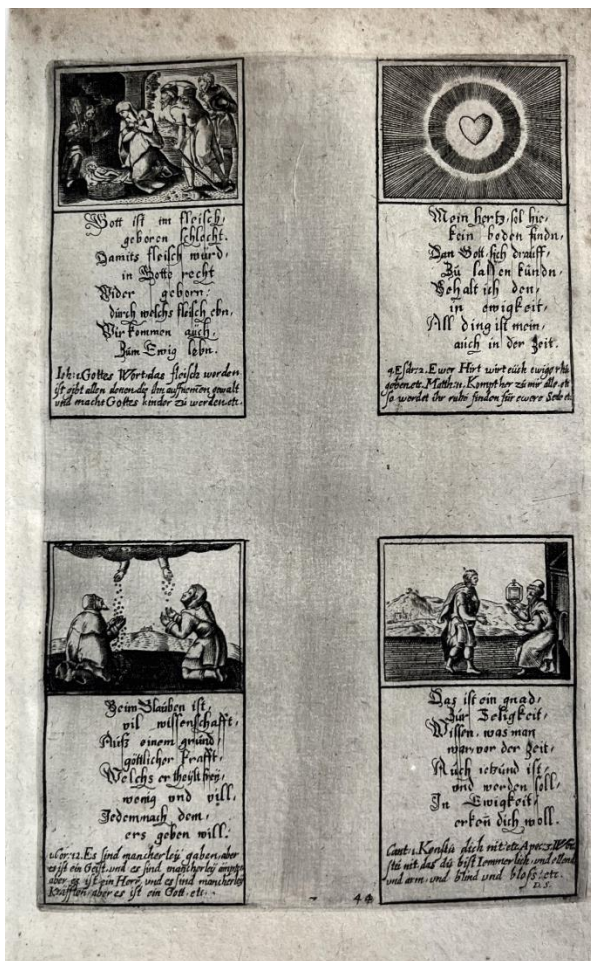 Gott ist im fleisch,
geboren schlecht.
Damits fleisch würd,
in Gotto recht
Wider geborn:
durch welchs fleisch ebn,
Wir kommen auch,
Zum Ewig lebn.
Ioh: 1. Gottes Wort das fleisch worden
ist gibt allen denen die ihn aufnemen gewalt
und macht Gottes kinder zu werden. etc.
Mein hertz sol hie,
kein boden findn,
Dan Gott, sich drauff,
Zu lassen kündn,
Behalt ich den,
in ewigkeit,
All ding ist mein,
auch in der Zeit.
4. Esdr: 2. Ewer Hirt wirt eüsh ewige rhü
geben. etc. Matth: 11. Kompt her zu mir alle. etc
so werdet ihr ruhe finden für ewere Sele etc
Beim Glauben ist,
vil wissenschafft,
Auß einem grund,
göttlicher krafft,
Welchs er theylt frey,
wenig vnd vill,
Jedem nach dem,
ers geben will.
1. Cor: 12. Es sind mancherleÿ gaben, aber
es ist ein Geist, und es sind mancherleÿ ämpter
aber es ist ein Herr, und es sind mancherleÿ
Kräfften, aber es ist ein Gott, etc.
Das ist ein gnad,
Zur Seligkeit,
Wissen, was man
war, vor der Zeit,
Auch ietzund ist,
vnd werden soll,
In Ewigkeit,
erken̄ dich woll.
Cant: 1. Kenstu dich nit. etc. Apoc: 3.
stu nit, das du bist Iemmerlich, und ellend
und arm, und blind und bloss: etc.
D. S.
44